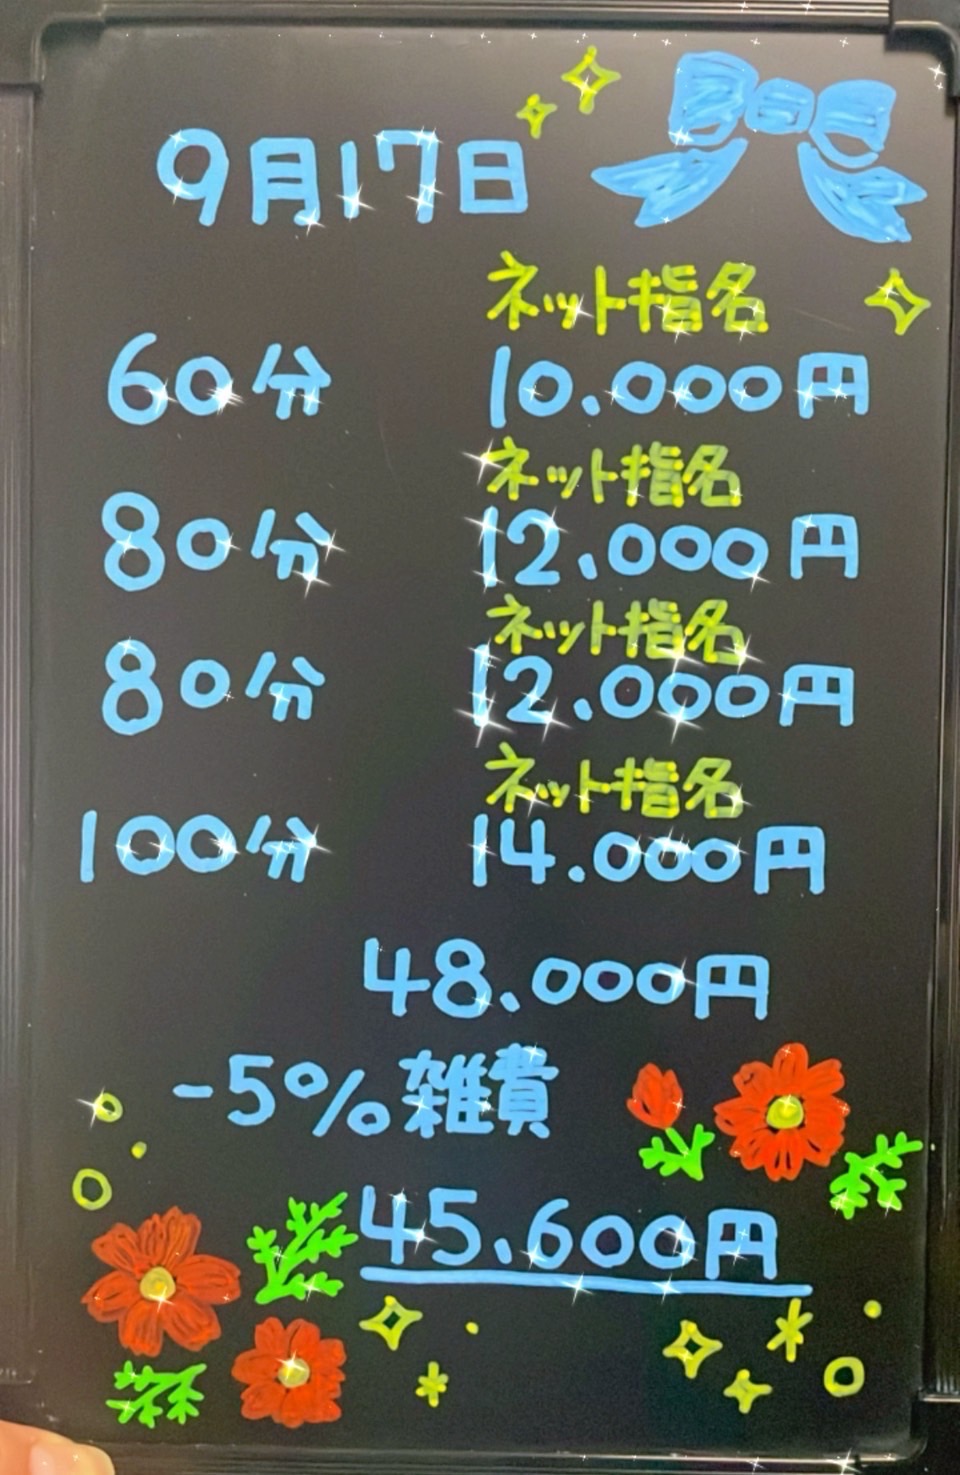 9月17日
ネット指名
60分 10.000円
ネット指名
80分 12.000円
ネット指名
80分 12.000円
ネット指名
100分 14.000円
48.000円
-5%雑費
45.600円